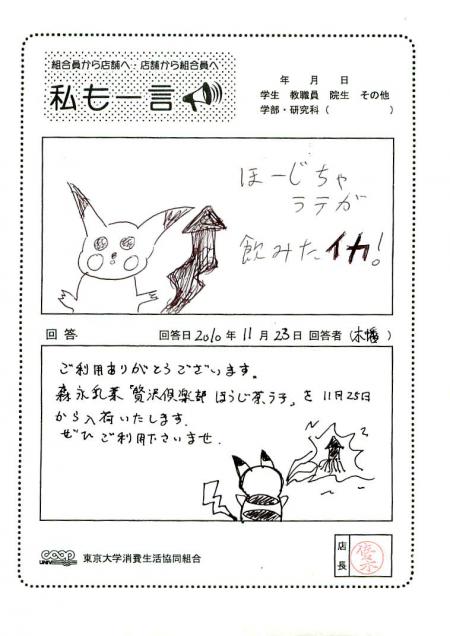 組合員から店舗へ・店舗から組合員へ
私も一言
年 月 日
学生 教職員 院生 その他
学部・研究科（ ）
ほーじちゃ
ラテが
飲みたイカ!
回答 回答日2010年11月23日 回答者（木幡）
ご利用ありがとうございます。
森永乳業「贅沢倶楽部 ほうじ茶ラテ」を 11月25日
から入荷いたします.
ぜひご利用下さいませ.
UNIV coop 東京大学消費生活協同組合
店長